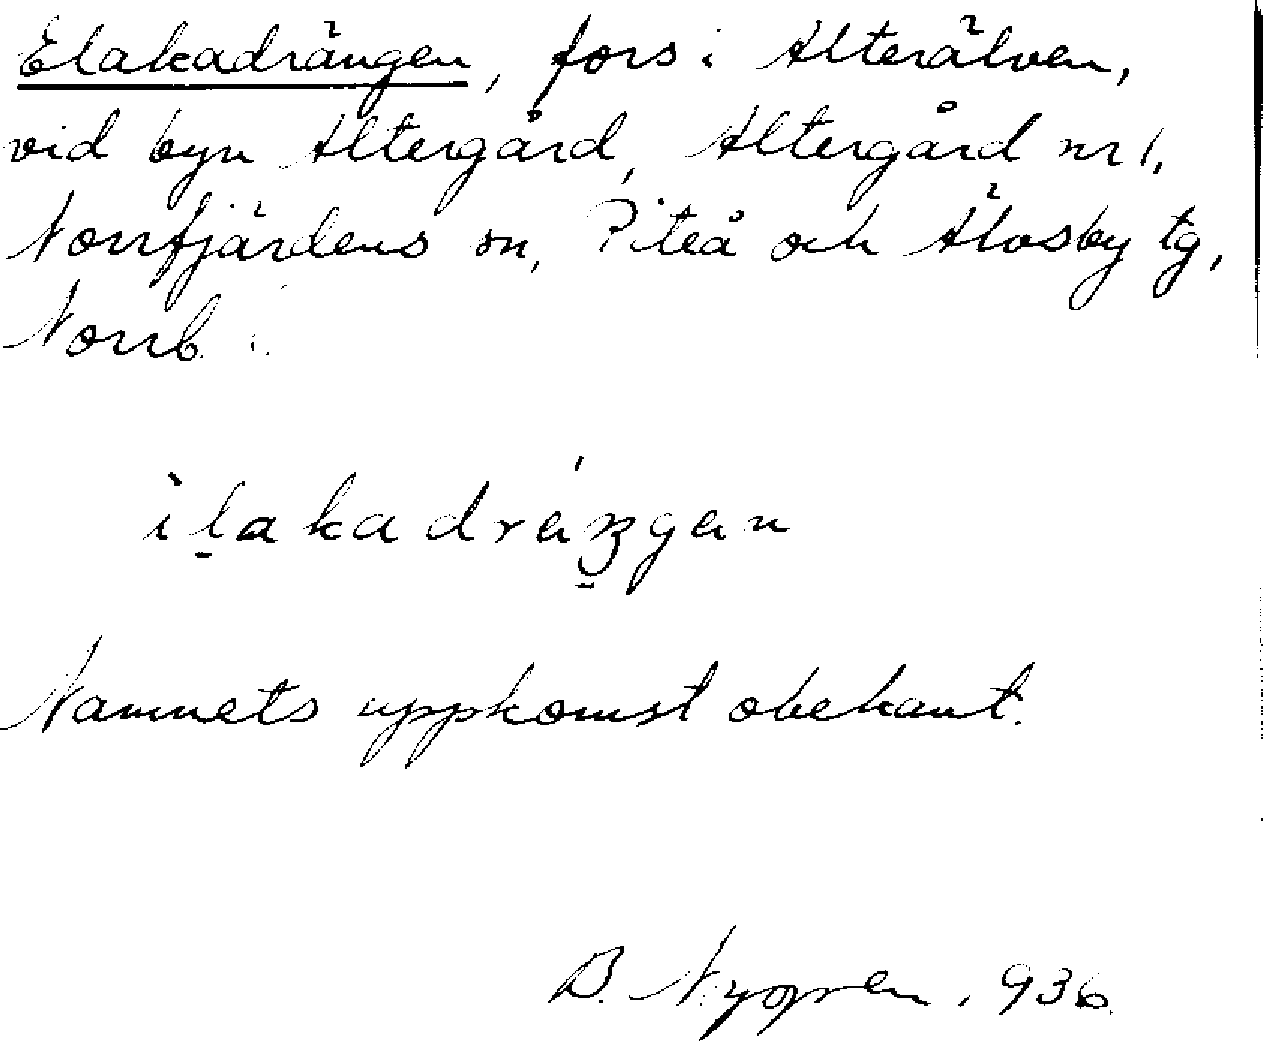 Elakadrängen, fors i Alterälven,
vid byn Altergård, Altergård nr 1,
Norrfjärdens sn, Piteå och Älvsby tg,
Norrb.
Namnets uppkomst obekant.
B. Nygren. 936.